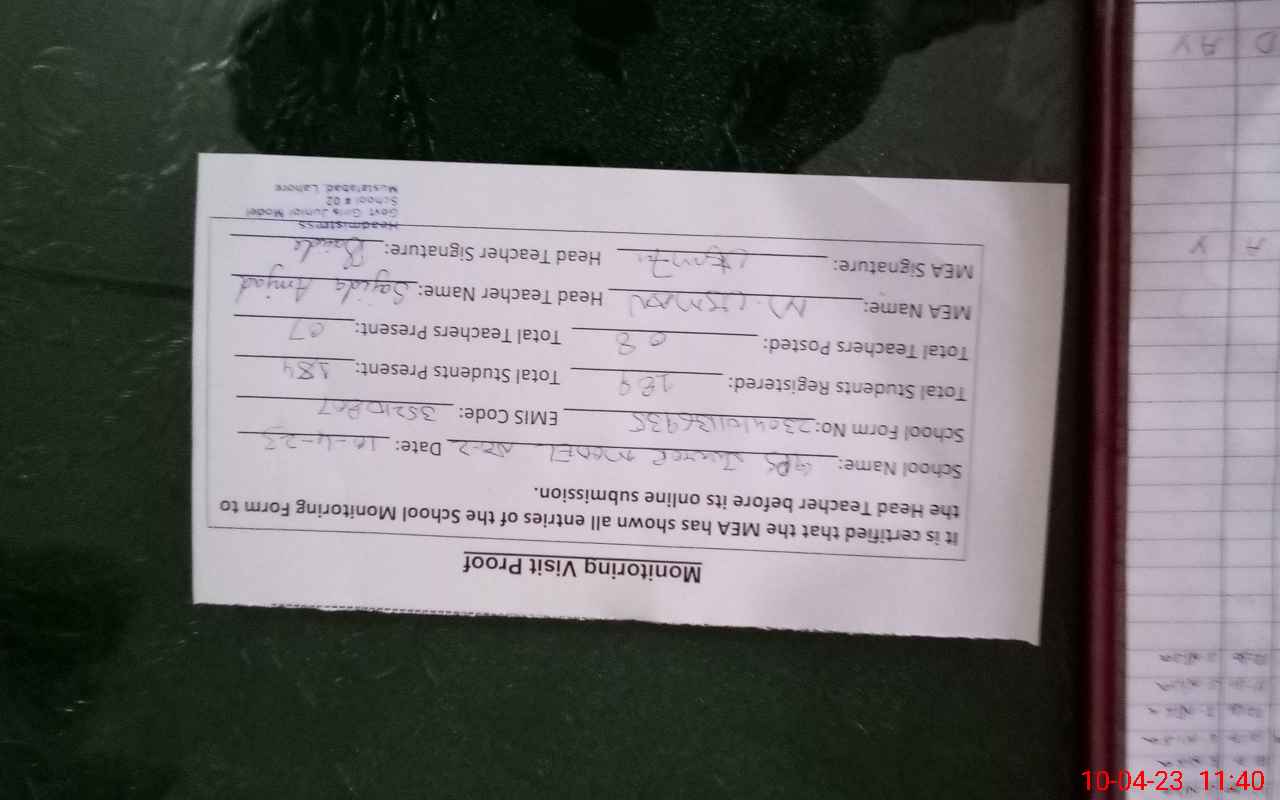 Monitoring Visit Proof
It is certified that the MEA has shown all entries of the School Monitoring Form to
the Head Teacher before its online submission.
School Name: GPS Junior MODEL NO-2 Date: 10-4-23
School Form No: EMIS Code: 35210807
Total Students Registered: 189 Total Students Present: 184
Total Teachers Posted: 08 Total Teachers Present: 07
MEA Name: M. USMAN Head Teacher Name: Sajida Amjad
MEA Signature: Head Teacher Signature:
Headmistress
Govt Girls Junior Model
School # 02
Mustafabad, Lahore
10-04-23 11:40